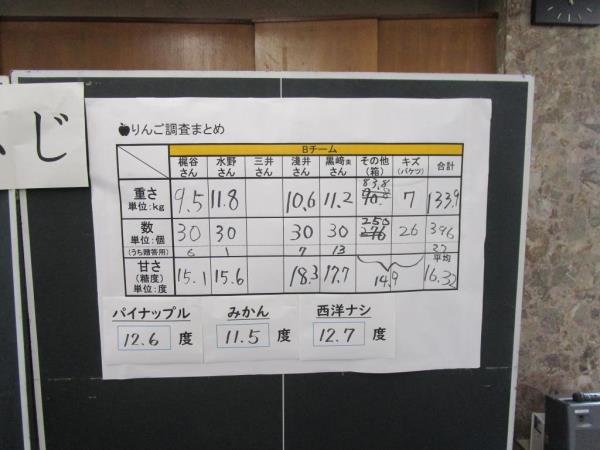 じ
りんご調査まとめ
Bチーム
梶谷さん 水野さん 三井さん 淺井さん 黒﨑さん その他(箱) キズ(バケツ) 合計
重さ 単位:kg 9.5 11.8 10.6 11.2 83.8 7 133.9
数 単位:個 30 30 30 30 250 276 26 396
(うち贈答用) 6 1 7 13 27
甘さ(糖度) 単位:度 15.1 15.6 18.3 17.7 14.9 平均 16.32
パイナップル みかん 西洋ナシ
12.6 度 11.5 度 12.7 度